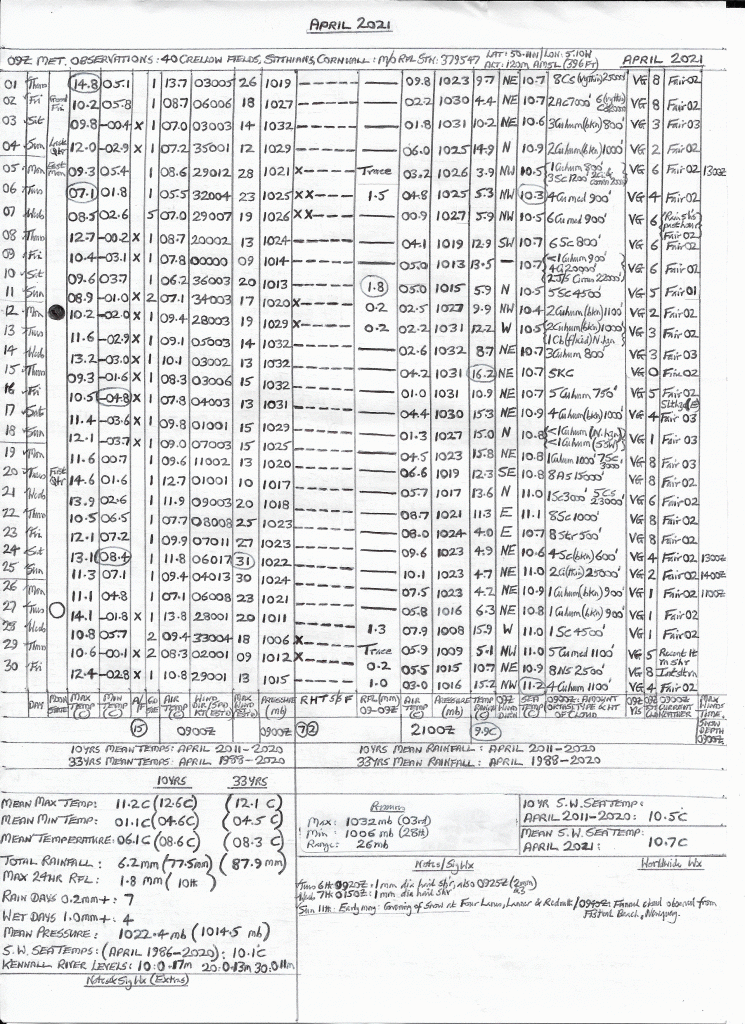 APRIL 2021
09Z MET. OBSERVATIONS: 40 CRELLOW FIELDS, STITHIANS, CORNWALL: M/O RFL STN: 379547 LAT: 50.11N/LON: 5.10W ALT: 120m AMSL (396 FT) APRIL 2021
01 Thu 14.8 05.1 1 13.7 03005 26 1019 09.8 1023 9.7 NE 10.7 VG 8 Fair 02
02 Fri Good Fri 10.2 05.8 1 08.7 06006 18 1027 02.2 1030 4.4 NE 10.7 VG 8 Fair 02
03 Sat 09.8 -00.4 X 1 07.0 03003 14 1032 01.8 1031 10.2 NE 10.6 3Cuhum(bkn)800' VG 3 Fair 03
04 Sun Last Qtr 12.0 -02.9 X 1 07.2 35001 12 1029 06.0 1025 14.9 N 10.9 2Cuhum(bkn)1000' VG 2 Fair 02
05 Mon East Mon 09.3 05.4 1 08.6 29012 28 1021 X Trace 03.2 1026 3.9 NW 10.5 VG 6 Fair 02 1300Z
06 Tues 07.1 01.8 1 05.5 32004 23 1025 XX 1.5 04.8 1025 5.3 NW 10.3 4Cu med 900' VG 4 Fair 02
07 Wed 08.5 02.6 5 07.0 29007 19 1026 XX 00.9 1027 5.9 NW 10.5 6Cu med 900' VG 6 Fair 02
08 Thu 12.7 -00.2 X 1 08.7 20002 13 1024 04.1 1019 12.9 SW 10.7 6Sc 800' VG 6 Fair 02
09 Fri 10.4 -03.1 X 1 07.8 00000 09 1014 05.0 1013 13.5 — 10.7 <1Cuhum 900' 4Ci 20000' VG 6 Fair 02
10 Sat 09.6 03.7 1 06.2 36003 20 1013 1.8 05.0 1015 5.9 N 10.5 5Sc 4500' VG 5 Fair 01
11 Sun 08.9 -01.0 X 2 07.1 34003 17 1020 X 0.2 02.5 1027 9.9 NW 10.4 2Cuhum(bkn)1100' VG 2 Fair 02
12 Mon 10.2 -02.0 X 1 09.4 28003 19 1029 X 0.2 02.2 1031 12.2 W 10.5 2Cuhum(bkn)1000' VG 3 Fair 02
13 Tues 11.6 -02.9 X 1 09.1 05003 14 1032 02.6 1032 8.7 NE 10.7 3Cuhum 800' VG 3 Fair 02
14 Wed 13.2 -03.0 X 1 10.1 03002 13 1032 04.2 1031 16.2 NE 10.7 SKC VG 0 Fair 02
15 Thu 09.3 -01.6 X 1 08.3 03006 15 1032 01.0 1031 10.9 NE 10.7 5Cuhum 750' VG 5 Fair 02
16 Fri 10.5 -04.8 X 1 07.8 04003 13 1031 04.4 1030 15.3 NE 10.9 4Cuhum(bkn)1000' VG 4 Fair 03
17 Sat 11.4 -03.6 X 1 09.8 01001 15 1029 01.3 1027 15.0 N 10.8 VG 1 Fair 03
18 Sun 12.1 -03.7 X 1 09.0 07003 15 1025 04.5 1023 15.8 NE 10.8 VG 8 Fair 03
19 Mon 11.6 00.7 1 09.6 11002 13 1020 06.6 1019 12.3 SE 10.8 8As 15000' VG 8 Fair 02
20 Tues First Qtr 14.6 01.6 1 12.7 01001 10 1017 05.7 1017 13.6 N 11.0 1Sc3000' 5Cs 23000' VG 6 Fair 02
21 Wed 13.9 02.6 1 11.9 09003 20 1018 08.7 1021 11.3 E 11.1 8Sc 1000' VG 8 Fair 02
22 Thu 10.5 06.5 1 07.7 08008 25 1023 08.0 1024 4.0 E 10.7 8Str 500' VG 8 Fair 02
23 Fri 12.1 07.2 1 09.9 07011 27 1023 09.6 1023 4.9 NE 10.6 4Sc(bkn)600' VG 4 Fair 02 1300Z
24 Sat 13.1 08.4 1 11.8 06017 31 1022 10.1 1023 4.7 NE 11.0 2Ci(thin)25000' VG 2 Fair 02 1400Z
25 Sun 11.3 07.1 1 09.4 04013 30 1024 07.5 1023 4.2 NE 10.9 1Cuhum(bkn)900' VG 1 Fair 02 1100Z
26 Mon 11.1 04.8 1 07.1 06008 23 1021 05.8 1016 6.3 NE 10.8 1Cuhum(bkn)900' VG 1 Fair 02
27 Tues 14.1 -01.8 X 1 13.8 28001 20 1011 1.3 07.9 1008 15.9 W 11.0 1Sc 4500' VG 1 Fair 02
28 Wed 10.8 05.7 2 09.4 33004 18 1006 X Trace 05.9 1009 5.1 NW 11.0 5Cu med 1100' VG 5
29 Thu 10.6 -00.1 X 2 08.3 02001 09 1012 X 0.2 05.5 1015 10.7 NE 10.9 8NS 2500' VG 8
30 Fri 12.4 -02.8 X 1 10.8 28001 13 1015 1.0 03.0 1016 15.2 NW 11.2 4Cuhum 1100' VG 4 Fair 02
DAYS MOON STATE MAX TEMP (C) MIN TEMP (C) A/F AIR TEMP (C) WIND DIR/SPD KT(ESTD) MAX WIND (ESTD) PRESSURE (mb) R H T S F RFL(mm) 09-09Z AIR TEMP (C) PRESSURE (mb) TEMP RANGE (C) 09Z WIND DIRCN SEA TEMP (C) 0900Z: AMOUNT OKTAS, TYPE & HT OF CLOUD 09Z VIS 0900Z CURRENT WEATHER MAX WINDS TIME. SNOW DEPTH 0900Z
15 0900Z 0900Z 72 2100Z 9.9C
10YRS MEAN TEMPS: APRIL 2011-2020 10YRS MEAN RAINFALL: APRIL 2011-2020
33YRS MEAN TEMPS: APRIL 1988-2020 33YRS MEAN RAINFALL: APRIL 1988-2020
10YRS 33YRS
MEAN MAX TEMP: 11.2C (12.6C) (12.1 C)
MEAN MIN TEMP: 01.1C (04.6C) (04.5 C)
MEAN TEMPERATURE: 06.1C (08.6C) (08.3 C)
TOTAL RAINFALL: 6.2mm (77.5mm) (87.9mm)
MAX 24HR RFL: 1.8 mm (10th)
RAIN DAYS 0.2mm+: 7
WET DAYS 1.0mm+: 4
MEAN PRESSURE: 1022.4 mb (1014.5 mb)
S.W. SEA TEMPS: (APRIL 1986-2020): 10.1C
KENNALL RIVER LEVELS: 10: 0.17m 20: 0.13m 30: 0.11m
Notes & Sig Wx (Extras)
Pressures
Max: 1032mb (03rd)
Min: 1006 mb (28th)
Range: 26mb
10 YR S.W. SEA TEMP:
APRIL 2011-2020: 10.5C
MEAN S.W. SEA TEMP:
APRIL 2021: 10.7C
Notes/Sig Wx Worldwide Wx
Tues 6th 0920Z: 1mm dia hail shr, also 0925Z (2mm)
Wed 7th 0150Z: 1mm dia hail shr
Sun 11th: Early mng: Covering of Snow at Four Lanes, Lanner & Redruth / 0940Z: Funnel cloud observed from Fistral Beach, Newquay.